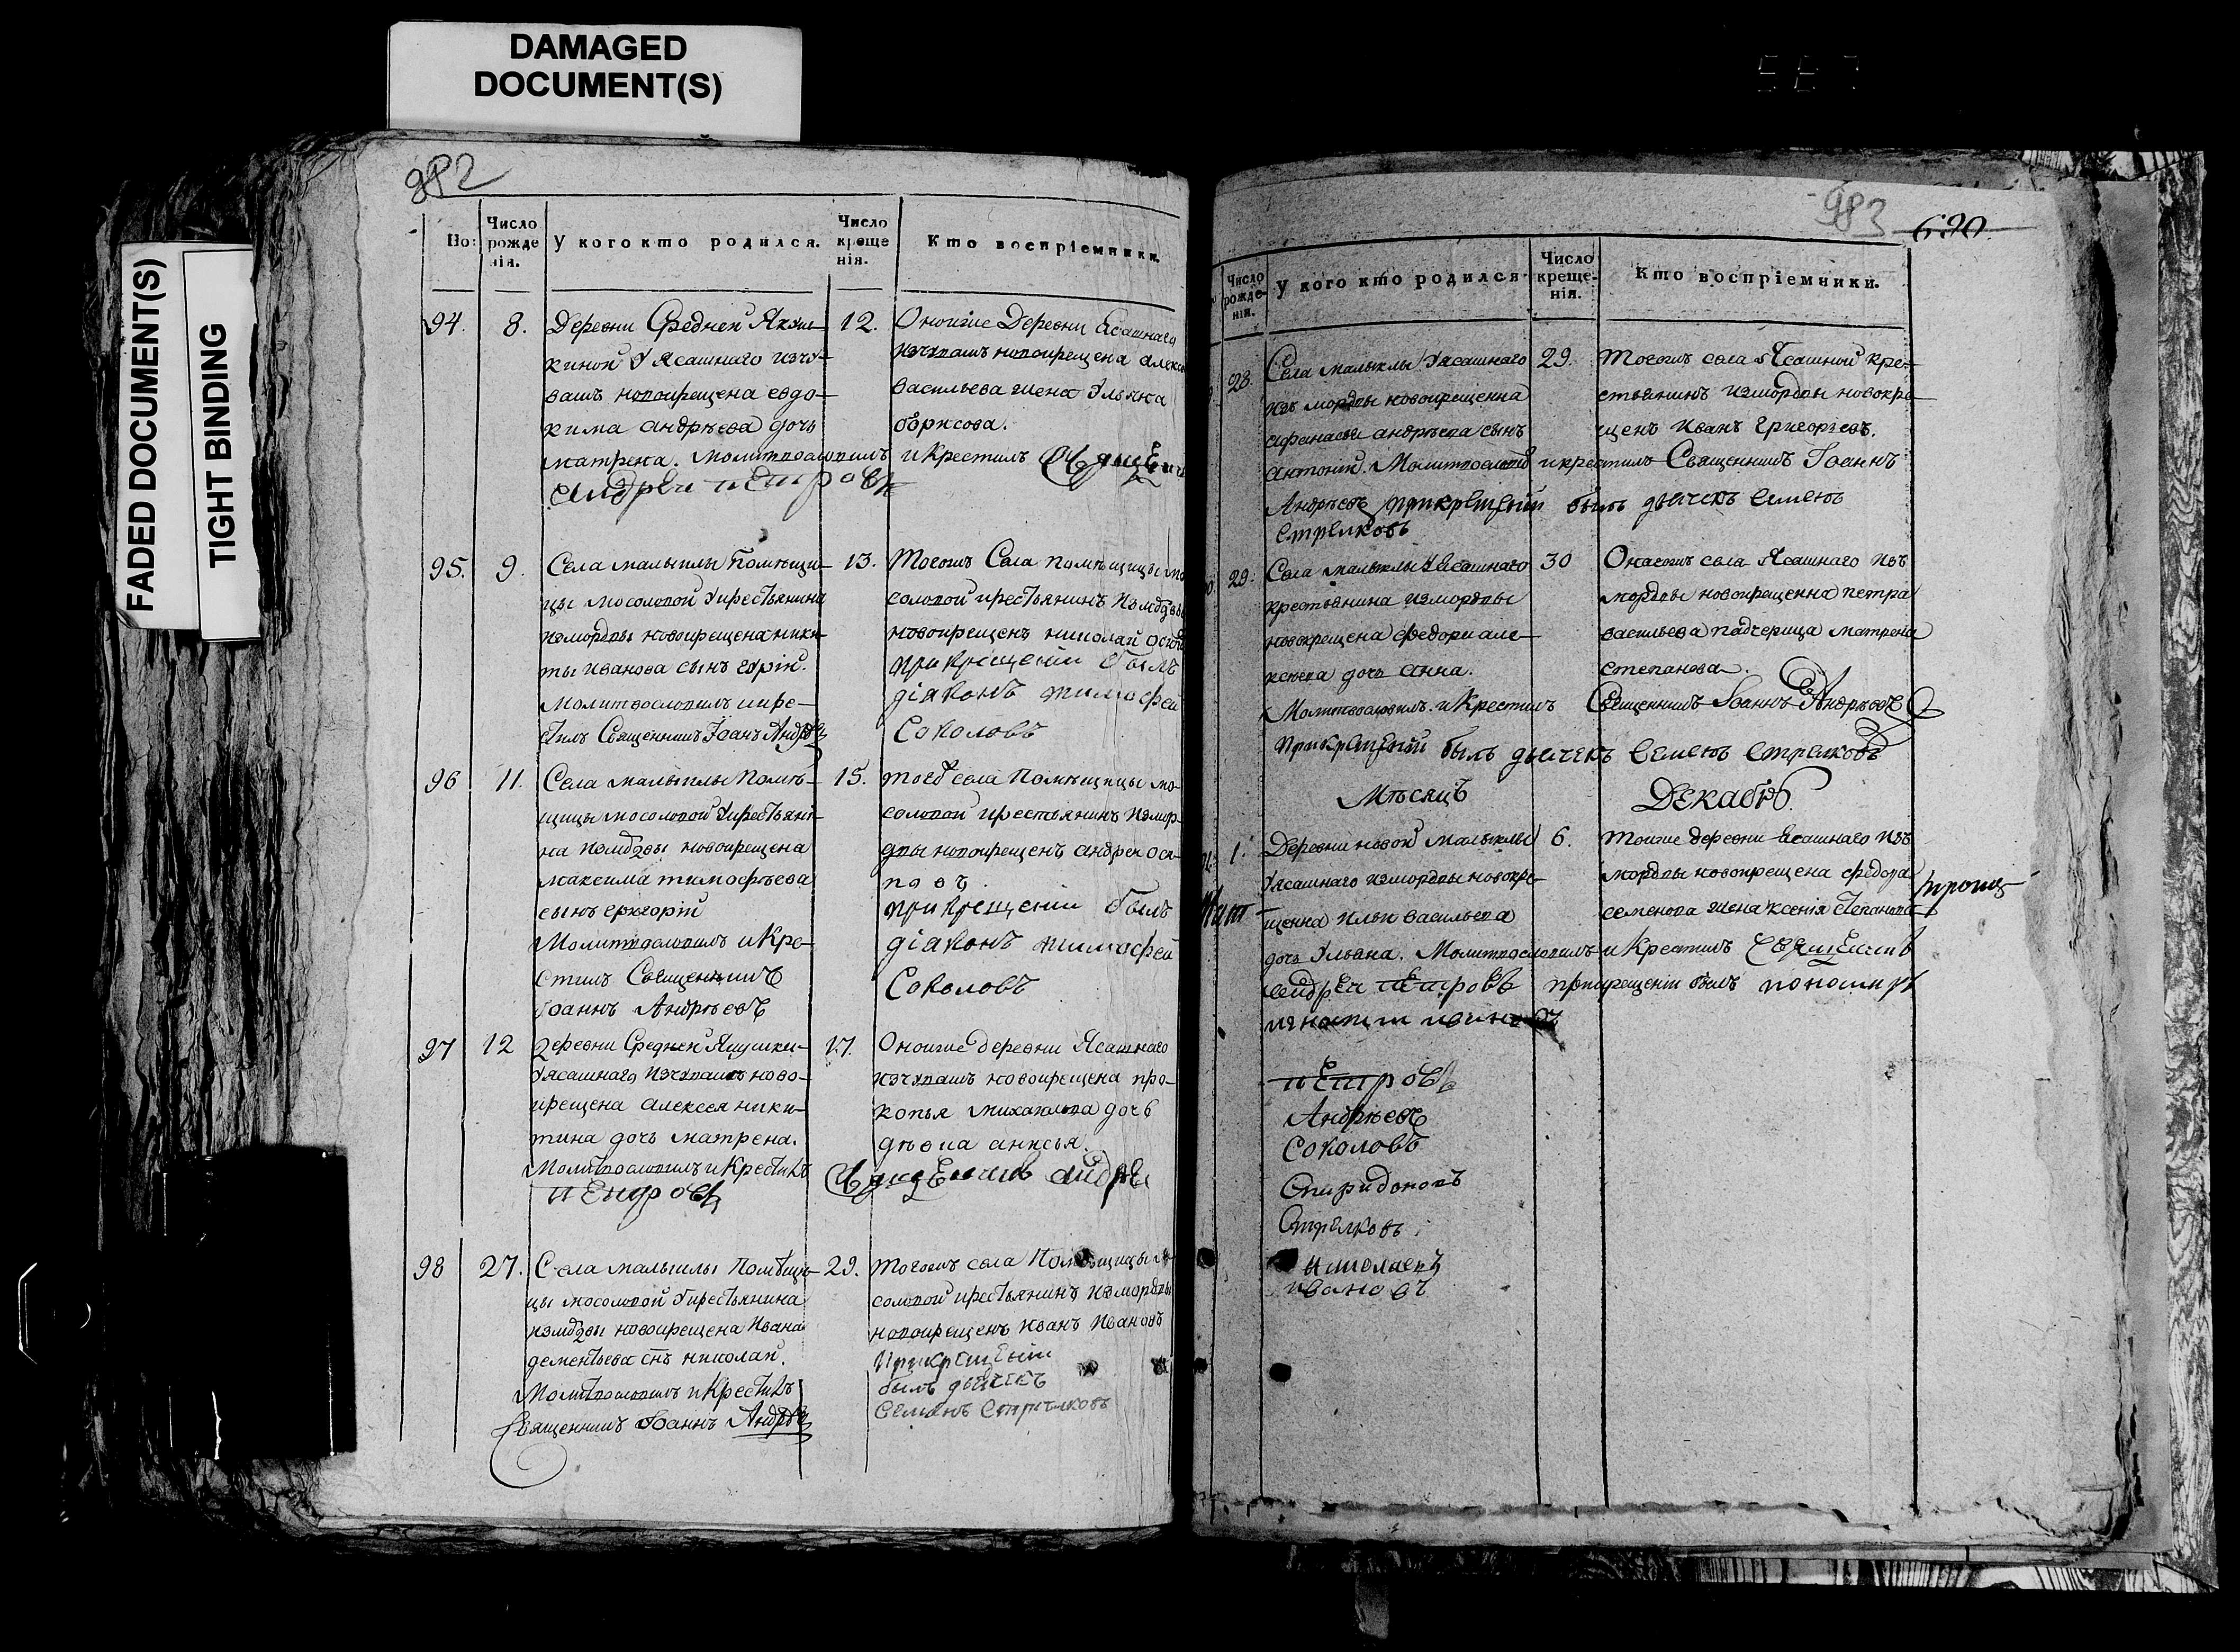 DAMAGED
DOCUMENT(S)
FADED DOCUMENT(S)
TIGHT BINDING
982
Но:
Число рожде нія.
У кого кто родился.
Число креще нія.
Кто воспріемники.
94. 8. 12.
Деревни Средней Якуш-
киной У Ясашнаго изчу-
вашъ новокрещена евдо-
кима андреева дочь
матрена. Молитвословилъ и Крестилъ
андрей петровъ
Оноиже Деревни Ясашнаго
изчувашъ новокрещена
васильева жена Ульяна
борисова.
95. 9. 13.
Села малыклы Помѣщи-
цы мосоловой Укрестьянина
измордвы новокрещена ники-
ты иванова сынъ
Молитвословилъ икре-
стилъ Священникъ Іоанъ
Тогожъ Села помѣщицы мо
соловой крестьянинъ
новокрещенъ николай
прикрещеніи былъ
діаконъ тимофей
Соколовъ
96 11. 15.
Села малыклы Помѣ-
щицы мосоловой Укрестьяни-
на новокрещена
максима тимофѣева
сынъ григорій
Молитвословилъ и Кре-
стилъ Священникъ
Іоаннъ Андрѣевъ
тогожъ села Помѣщицы мо-
соловой крестьянинъ измор-
двы новокрещенъ андрей оси-
повъ.
прикрещеніи былъ
діаконъ тимофей
Соколовъ
97 12 17.
Деревни Средней Якушки-
Уясашнаго изчувашъ ново-
крещена алексея ники-
тина дочь матрена.
Молитвословилъ и Крестилъ
петровъ
Оноиже деревни Ясашнаго
изчувашъ новокрещена про-
копья михайлова дочь
девка анисья.
Священникъ андрей
98 27. 29.
Села малыклы Помѣщи-
цы мосоловой Укрестьянина
новокрещена Ивана
дементьева снъ николай.
Молитвословилъ и Крестилъ
Священникъ Іоаннъ Андрѣевъ
тогожъ села Помѣщицы мо
соловой крестьянинъ измордвы
новокрещенъ иванъ Ивановъ
прикрещеніи
былъ дьячекъ
Семенъ Стрелковъ
983
620
Число рожде- нія.
У кого кто родился
Число креще- нія.
Кто воспріемники.
28. 29.
Села малыклы Уясашнаго
изъ мордвы новокрещенна
афанасья андрѣева сынъ
антоній. Молитвословилъ и крестилъ Священникъ Іоаннъ
Андрѣевъ прикрещеніи былъ дьячекъ Семенъ
Стрелковъ
Тогожъ села Ясашной кре-
стьянинъ измордвы новокре-
щенъ иванъ григорьевъ.
29. 30
Села малыклы Уясашнаго
крестьянина измордвы
новокрещена федора але-
ксѣева дочь анна.
Молитвословилъ и Крестилъ Священникъ Іоаннъ Андрѣевъ
прикрещеніи былъ дьячекъ Семенъ Стрелковъ
Онагожъ села Ясашнаго изъ
мордвы новокрещенна петра
васильева падчерица матрена
степанова.
Мѣсяцъ Декабрь.
1. 6.
Деревни новой малыклы
Уясашнаго измордвы новокре-
щенна ильи васильева
дочь Ульяна. Молитвословилъ и Крестилъ Священникъ
андрей петровъ прикрещеніи былъ пономарь
Тоиже деревни Ясашнаго изъ
мордвы новокрещена федора
семенова жена ксенія степанова
петровъ
Андрѣевъ
Соколовъ
Спиридоновъ
Стрелковъ
николаевъ
ивановъ